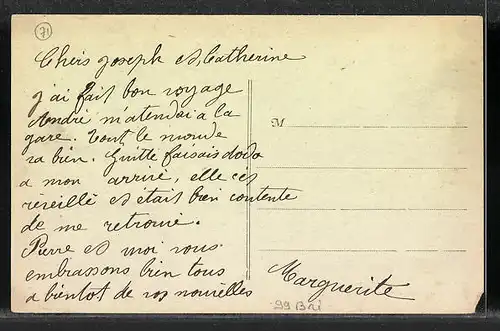 71
Chers Joseph et Catherine
j'ai fait bon voyage
André m'atendai a la
gare. Tout le monde
va bien. Guitte faisais dodo
a mon arrivé, elle ces
réveillé et était bien contente
de me retrouvé.
Pierre et moi vous
embrassons bien tous
a bientot de vos nouvelles
M
Marguerite
99 Bri